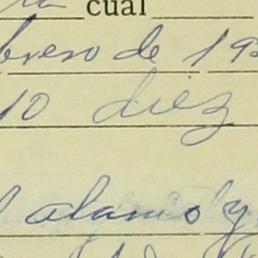 cual
brero de 19
10 diez
alamos y